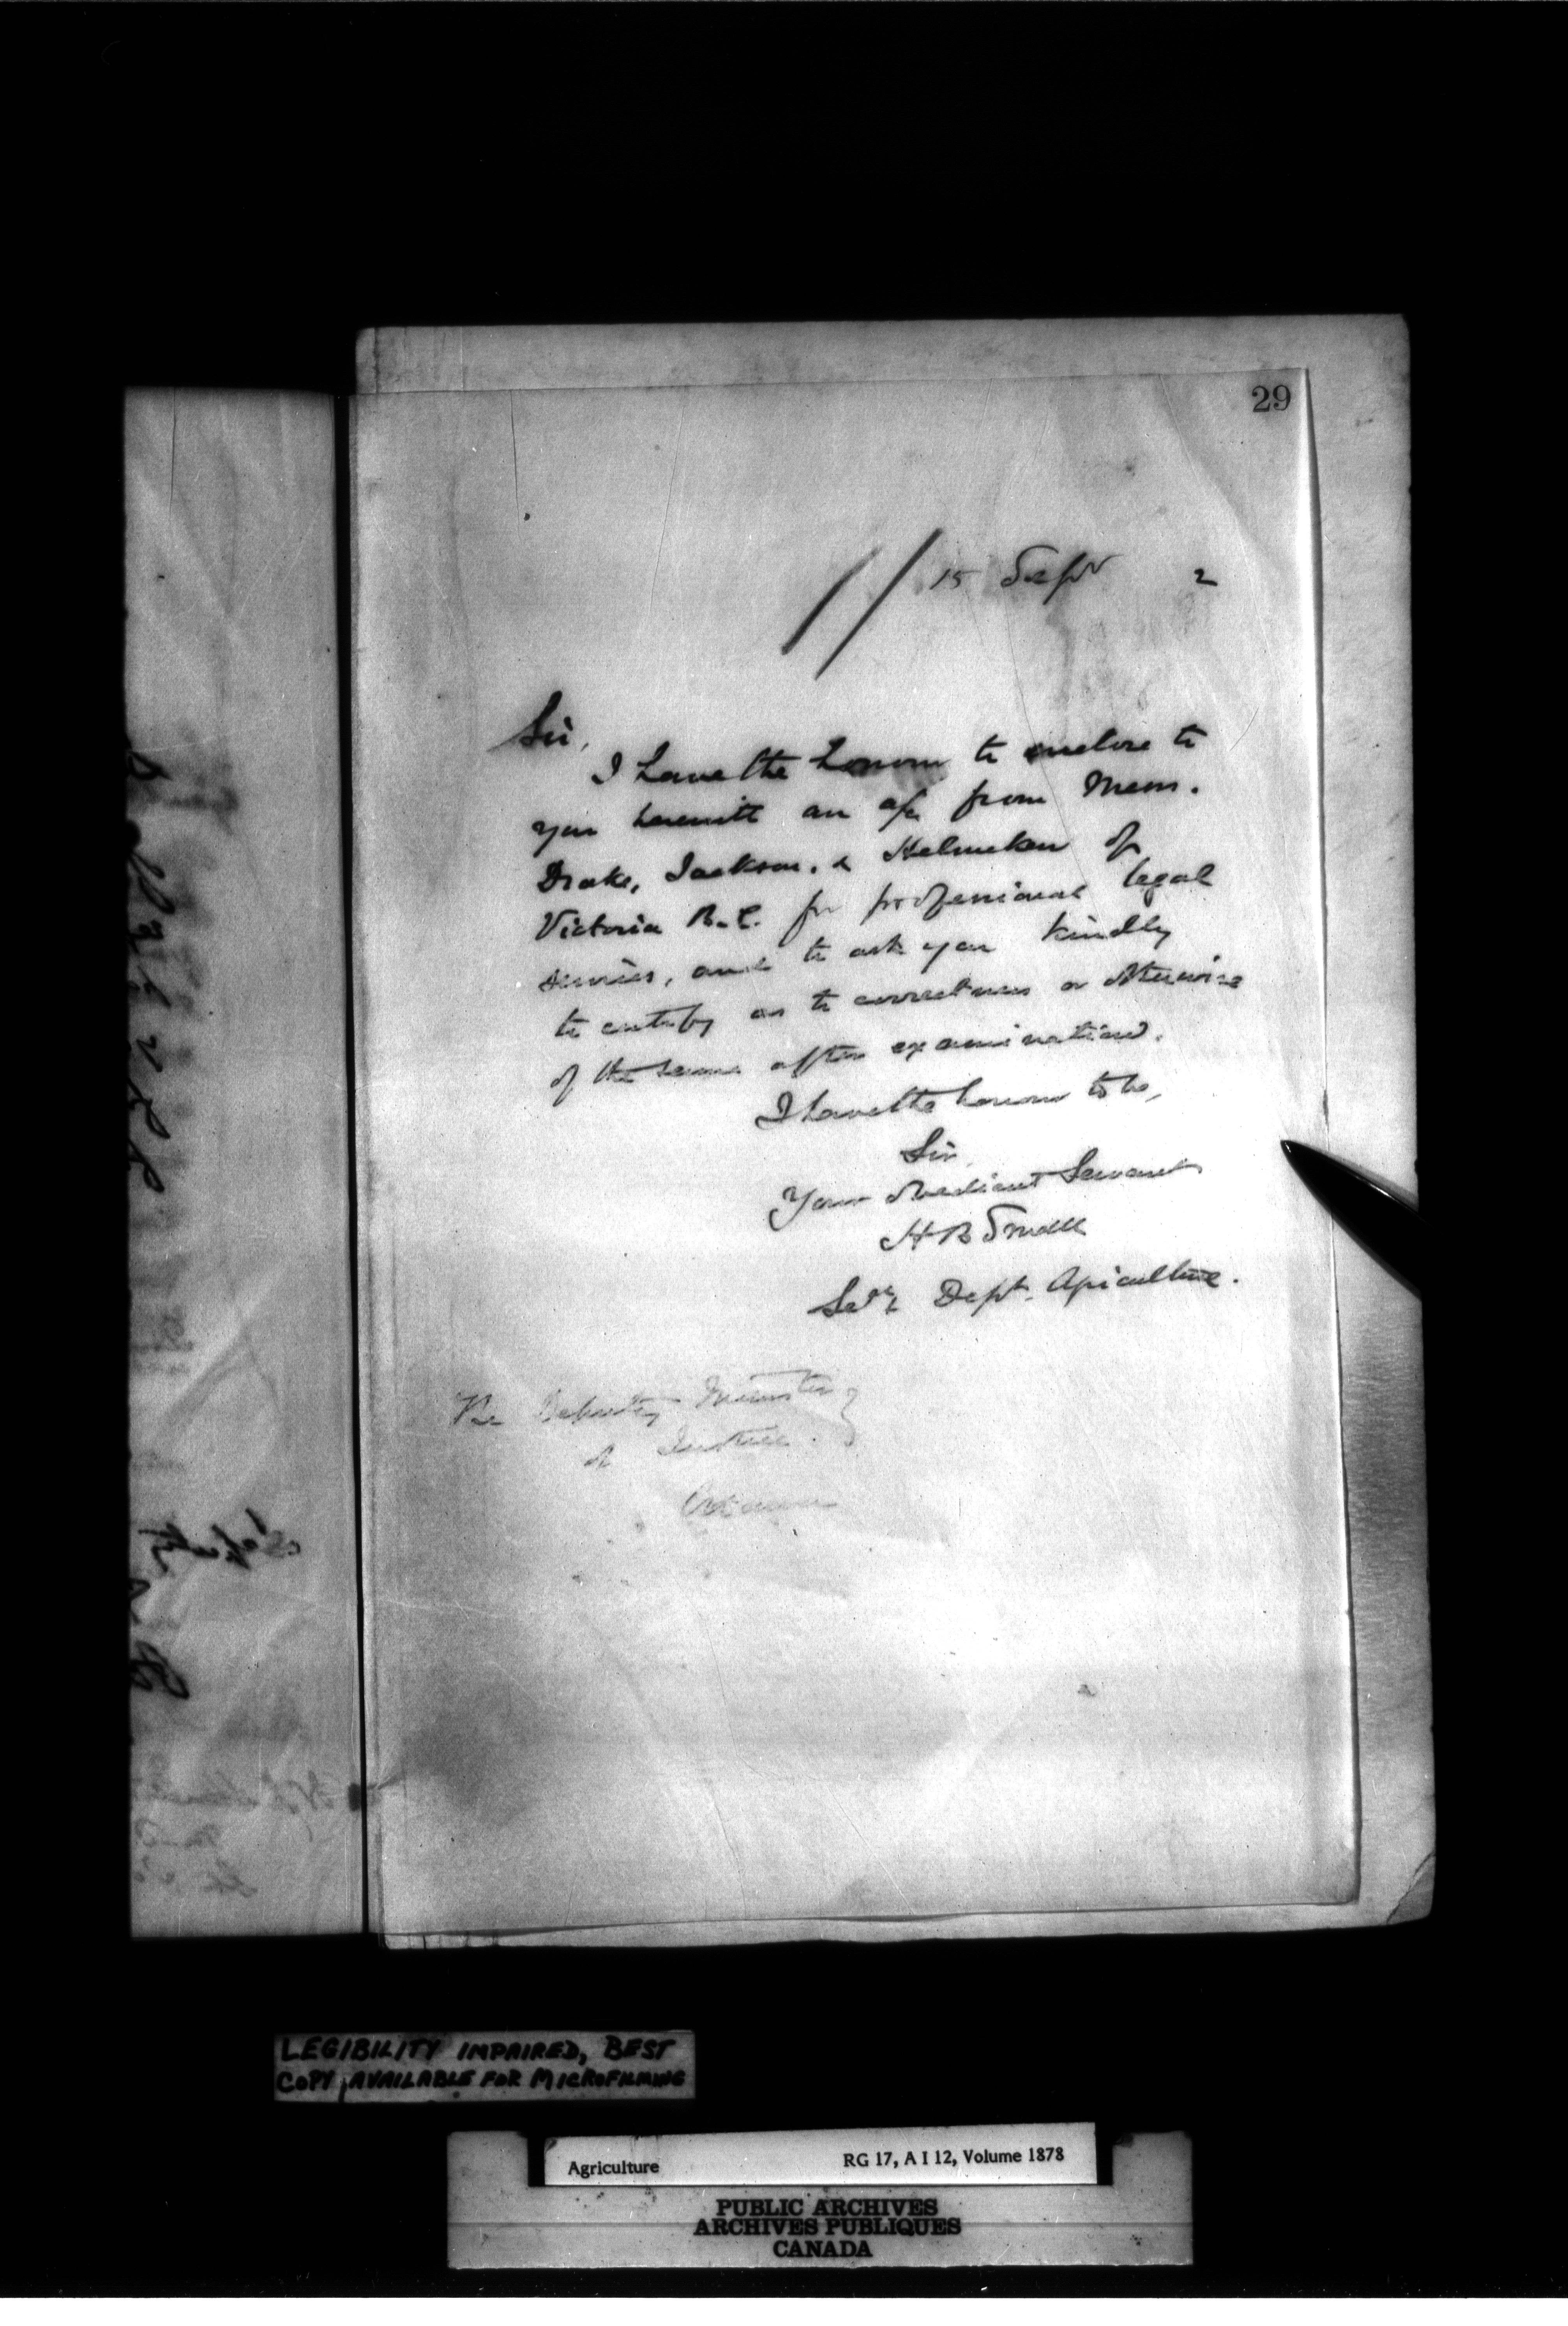 29
15 Sept 2
Sir,
I have the honour to enclose to
you herewith an a/c from Messrs.
Drake, Jackson, & Helmcken of
Victoria B.C. for professional legal
services, and to ask you kindly
to certify as to correctness or otherwise
of the same after examination.
I have the honour to be,
Sir,
Your obedient Servant
H B Small
Secy Dept. Agriculture.
The Deputy Minister
of Justice.
Ottawa
LEGIBILITY IMPAIRED, BEST
COPY AVAILABLE FOR MICROFILMING
Agriculture RG 17, A I 12, Volume 1878
PUBLIC ARCHIVES
ARCHIVES PUBLIQUES
CANADA